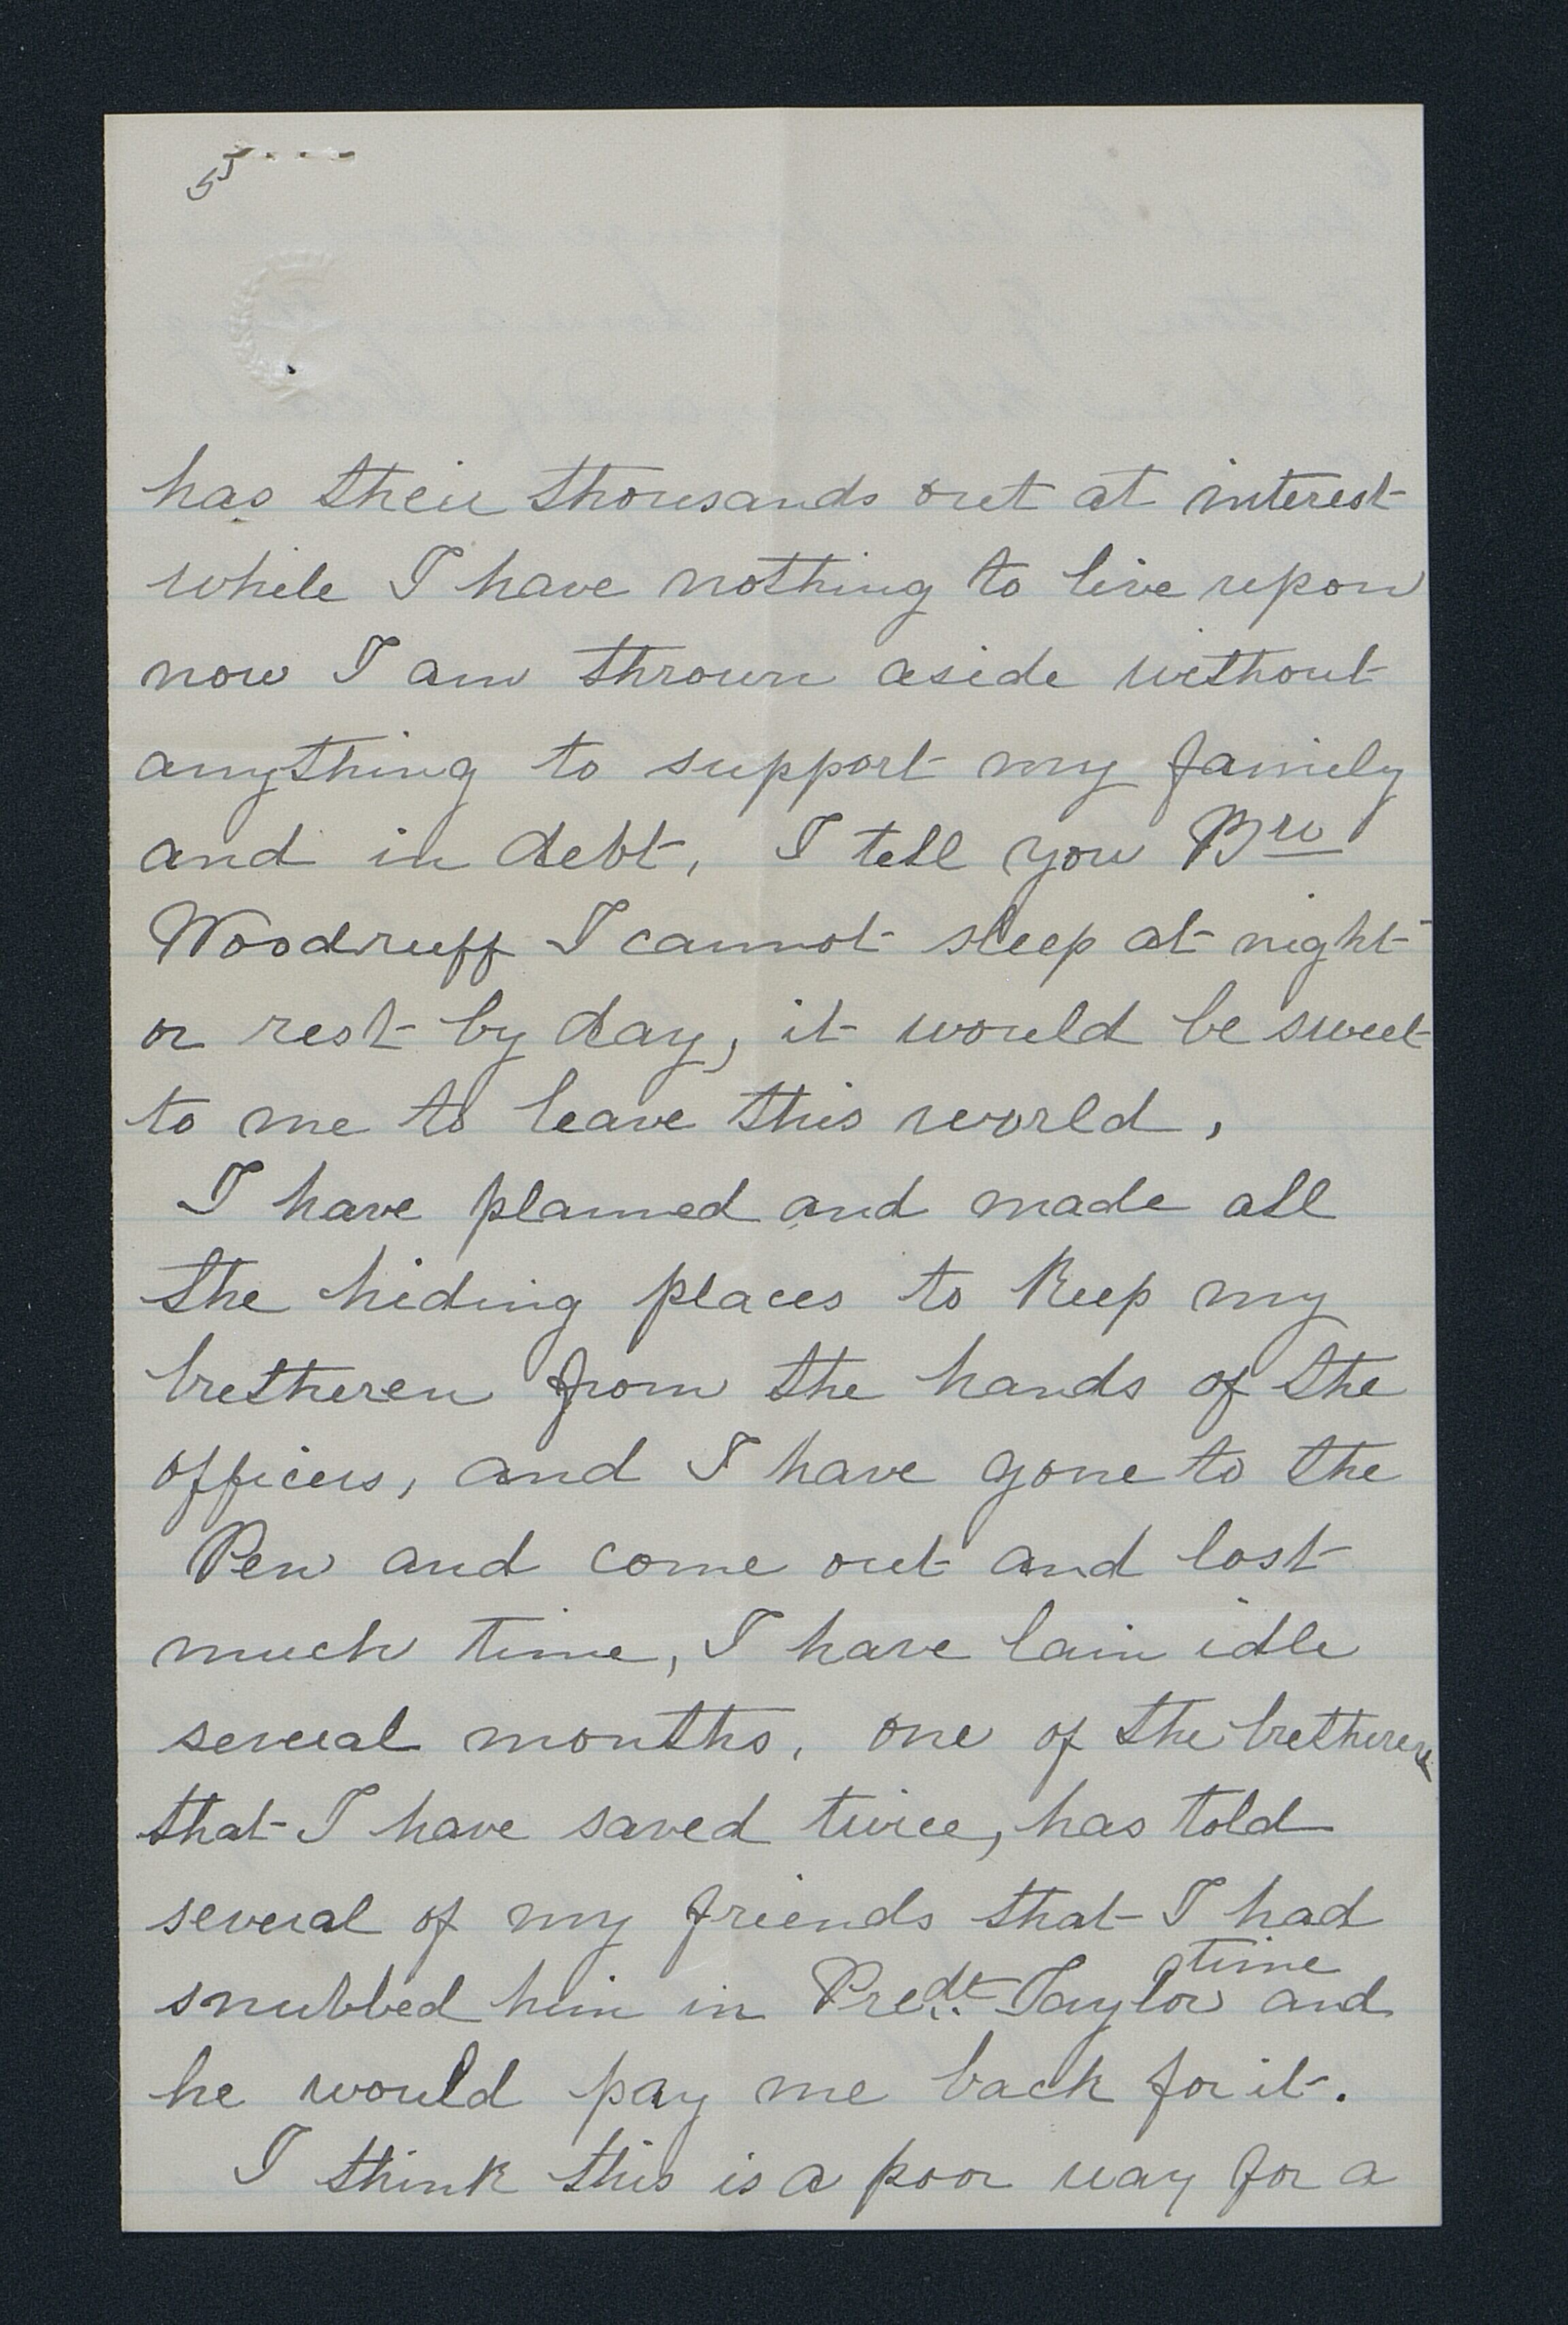 5
has their thousands out at interest
while I have nothing to live upon
now I am thrown aside without
anything to support my family
and in debt, I tell you Bro
Woodruff I cannot sleep at night
or rest by day, it would be sweet
to me to leave this world,
I have planned and made all
the hiding places to Keep my
bretheren from the hands of the
officers, and I have gone to the
Pen and come out and lost
much time, I have lain idle
several months, one of the bretheren
that I have saved twice, has told
several of my friends that I had
time
snubbed him in Predt. Taylor and
he would pay me back for it.
I think this is a poor way for a